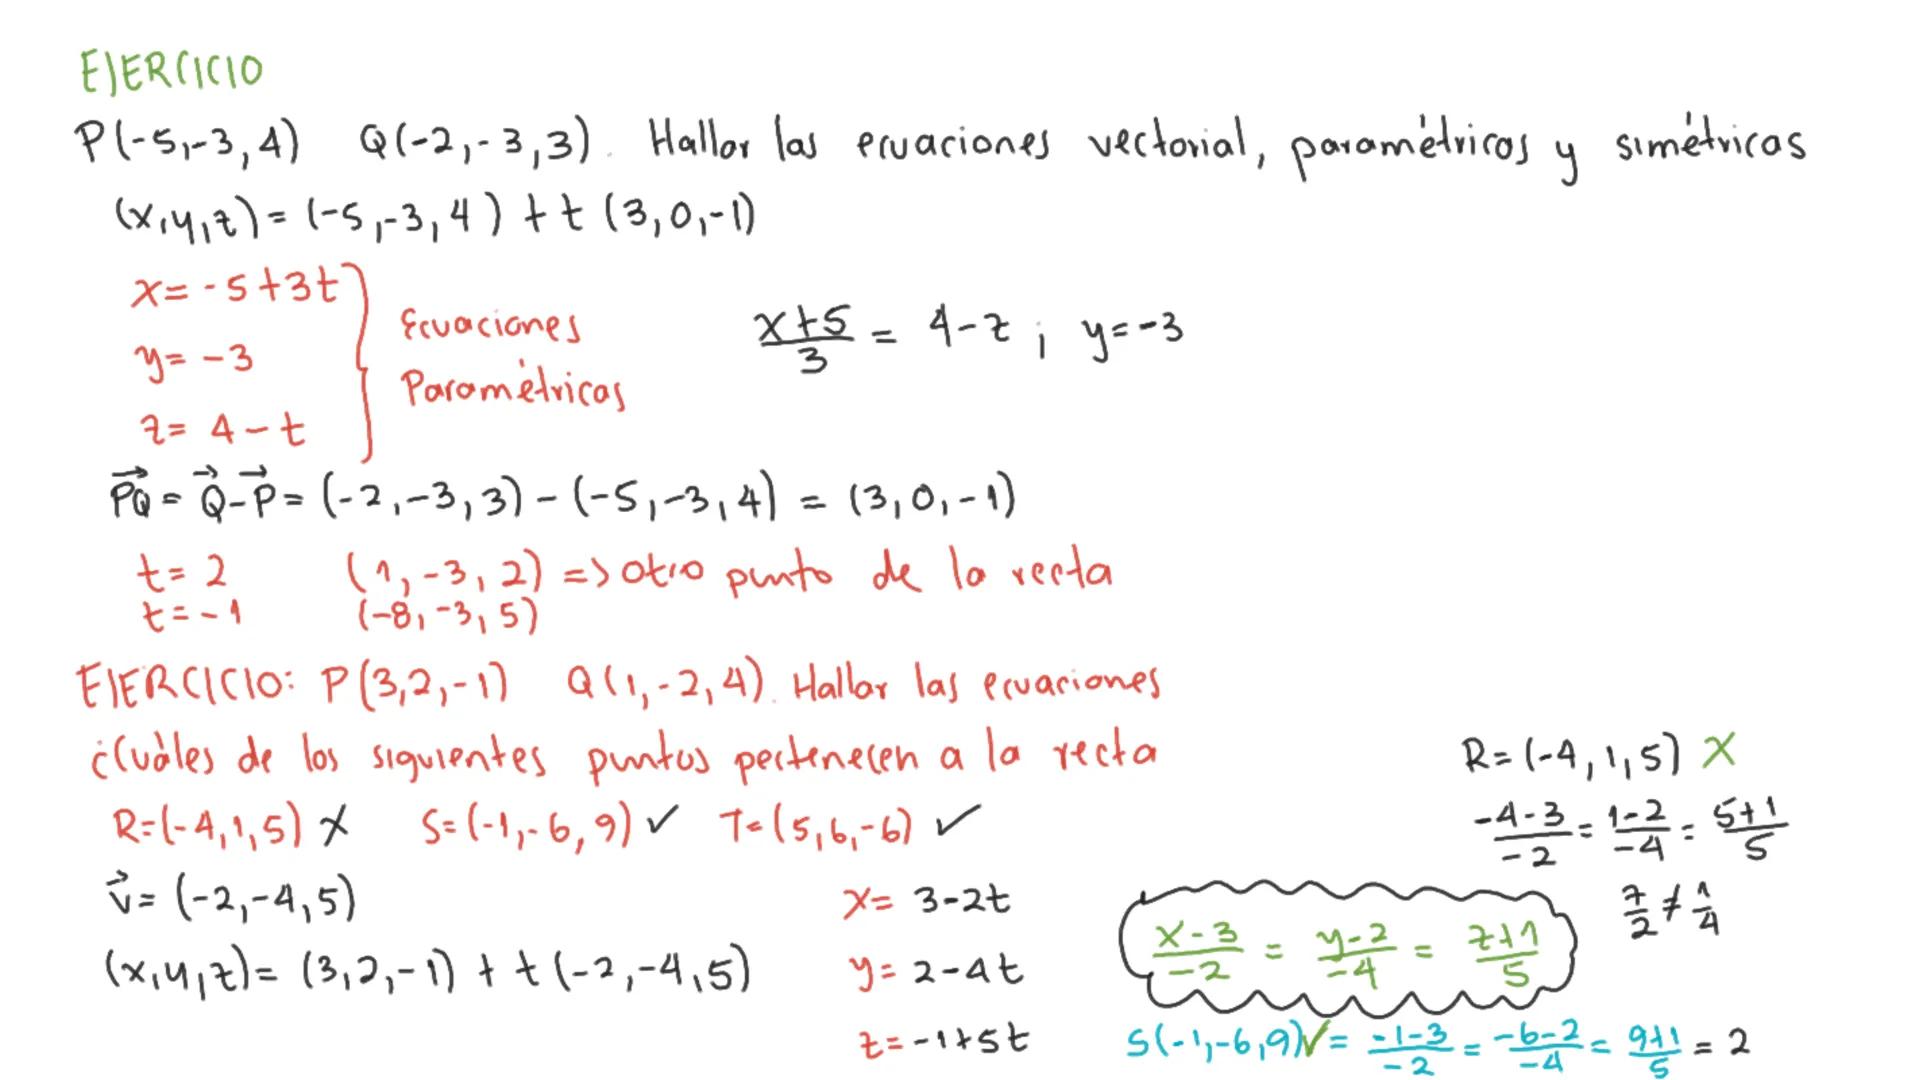 EJERCICIO
P(-5,-3,4) Q(-2,-3,3). Hallar las ecuaciones vectorial, paramétricas y simétricas
(x,y,z)= (-5,-3,4) + t (3,0,-1)
x= -5+3t
y= -3
z= 4-t
Ecuaciones
Paramétricas
x+5/3 = 4-z ; y=-3
PQ = Q-P = (-2,-3,3) - (-5,-3,4) = (3,0,-1)
t= 2 (1,-3,2) => otro punto de la recta
t= -1 (-8,-3,5)
EJERCICIO: P(3,2,-1) Q(1,-2,4). Hallar las ecuaciones
¿Cuáles de los siguientes puntos pertenecen a la recta
R=(-4,1,5) X S=(-1,-6,9) ✓ T=(5,6,-6) ✓
v= (-2,-4,5)
(x,y,z)= (3,2,-1) + t (-2,-4,5)
x= 3-2t
y= 2-4t
z= -1+5t
R= (-4,1,5) X
-4-3/-2 = 1-2/-4 = 5+1/5
7/2 ≠ 1/4
x-3/-2 = y-2/-4 = z+1/5
S(-1,-6,9)✓ = -1-3/-2 = -6-2/-4 = 9+1/5 = 2